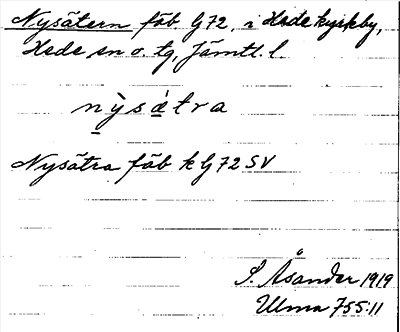 Nysätern fäb. G 72, i Hede kyrkby,
Hede sn o. tg, Jämtl. l.
nỳsä̀tra
Nysätra fäb k G 72 SV
S. Åsander 1919
Ulma 755:11